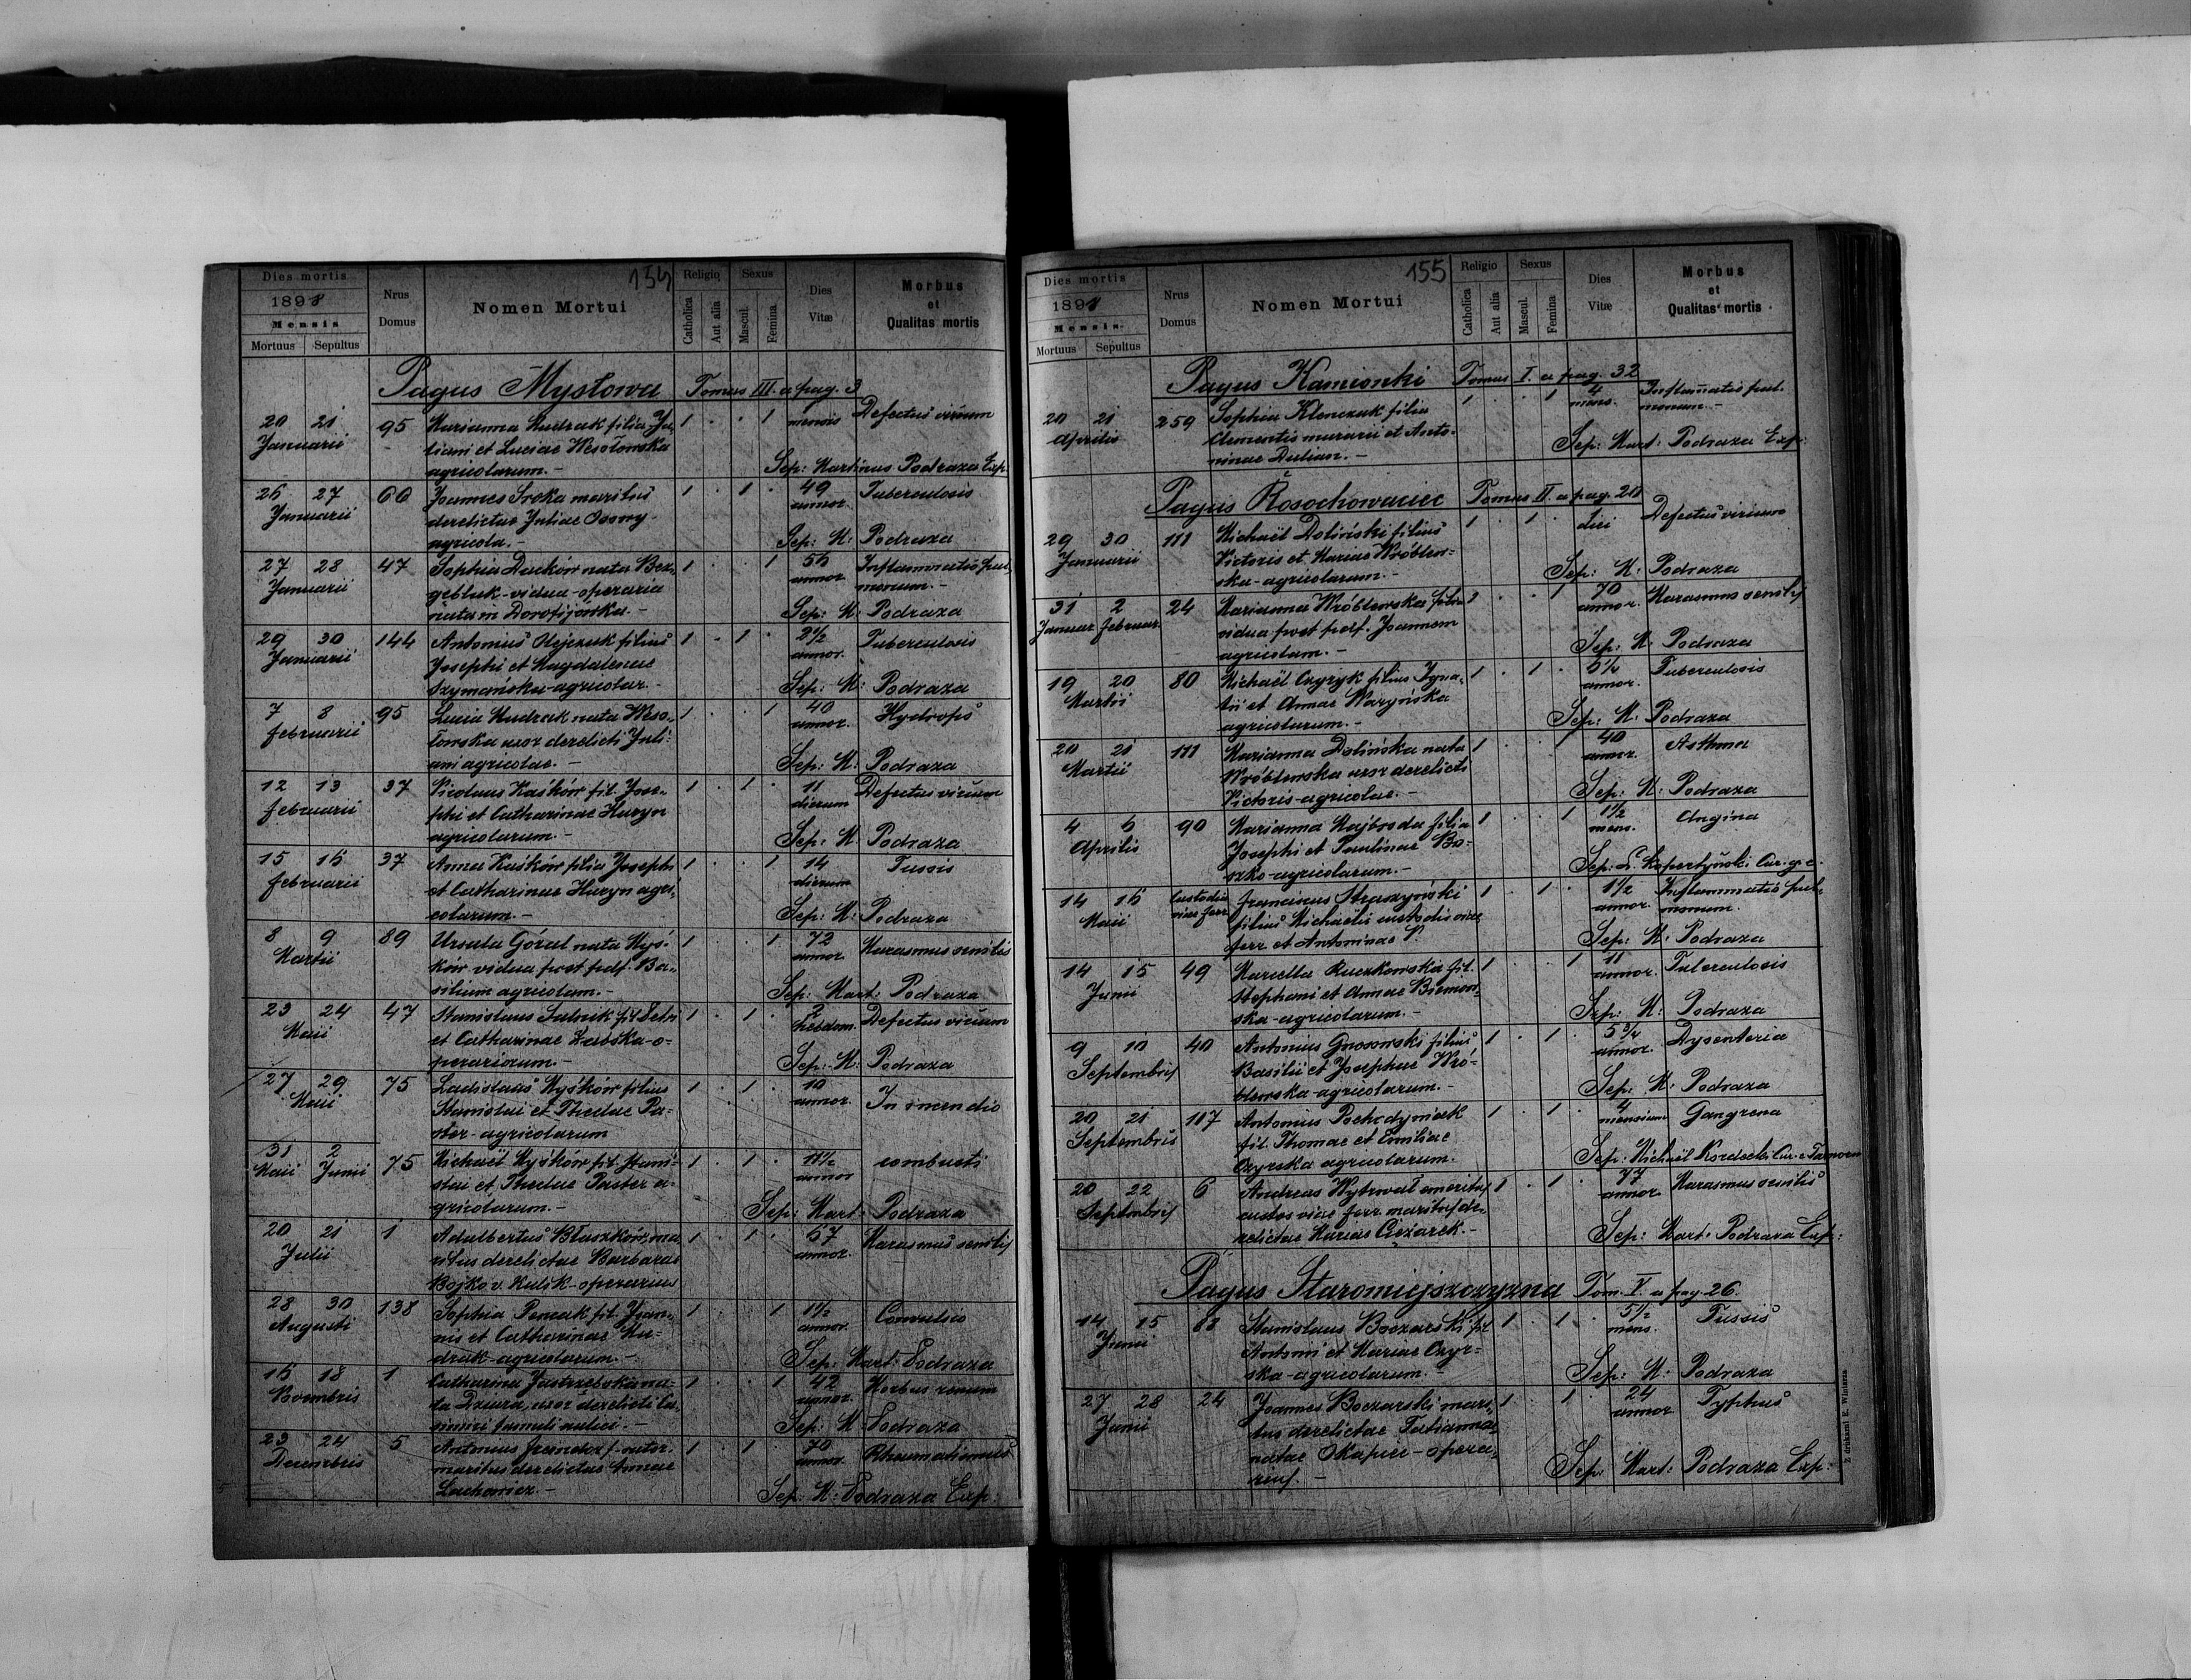 154
Dies mortis
1898
Mensis
Mortuus Sepultus
Nrus Domus
Nomen Mortui
Religio
Catholica
Aut alia
Sexus
Mascul.
Femina
Dies Vitæ
Morbus et Qualitas mortis
Pagus Mysłowa Tomus III. a pag. 3
20 21 Januarii 95 Marianna Kudzak filia Ju- 1 . . 1 mensis Defectus virium
liani et Luciae Wesołowska
agricolarum.-
Sep: Martinus Podraza Exp:
26 27 Januarii 60 Joannes Sroka maritus 1 . 1 . 49 annor. Tuberculosis
derelictae Juliae
agricola.-
Sep: M: Podraza
27 28 Januarii 47 Sophia Daćków nata Bez- 1 . . 1 56 annor. Inflammatio pul-
vidua-operaria monum.-
Sep: M: Podraza
29 30 Januarii 144 Antonius Olejczuk filius 1 . 1 . 2½ annor. Tuberculosis
Josephi et Magdalenae
Szymańska-agricolar.-
Sep: M: Podraza
7 8 Februarii 95 Lucia Kudzak nata Weso- 1 . . 1 40 annor. Hydrops
łowska uxor derelicti Juli-
ani agricolae.-
Sep: M: Podraza
12 13 Februarii 37 Nicolaus Kaśków fil. Jose- 1 . 1 . 11 dierum Defectus virium
phi et Catharinae Huzyn
agricolarum.-
Sep: M: Podraza
15 16 Februarii 37 Anna Kaśków filia Josephi 1 . . 1 14 dierum Tussis
et Catharinae Huzyn agri-
colarum.-
Sep: M: Podraza
8 9 Martii 89 Ursula Góral nata Myś- 1 . . 1 72 annor. Marasmus senilis
ków vidua post pdf. Ba-
silium agricolam.-
Sep: Mart: Podraza
23 24 Maii 47 Stanislaus Salnik fil. Petri 1 . 1 . 2 hebdom. Defectus virium
et Catharinae Zabska-o-
perariorum.-
Sep: M: Podraza
27 29 Maii 75 Ladislaus Myśków filius 1 . 1 . 10 annor. In incendio
Stanislai et Theclae Pa-
ster-agricolarum
31 Maii 2 Junii 75 Michaël Myśków fil. Stani- 1 . 1 . 11½ annor combusti
slai et Theclae Paster a-
gricolarum.-
Sep: Mart: Podraza
20 21 Julii 1 Adalbertus Błaszków, ma- 1 . 1 . 67 annor. Marasmus senilis
ritus derelictae Barbarae
Bojko v. Kulik-operarius
28 30 Augusti 138 Sophia Pencak fil. Joan- 1 . . 1 1½ annor. Convulsio
nis et Catharinae Ku-
druk-agricolarum.-
Sep: Mart: Podraza
16 18 Novembris 1 Catharina Jastrzebska na- 1 . . 1 42 annor. Morbus renum
ta Dziura, uxor derelicti Ca-
simiri famuli aulici.-
Sep: M: Podraza
23 24 Decembris 5 Antonius 1 . 1 . 70 annor. Rheumatismus
maritus derelictae Annae
Lachowicz.-
Sep: M: Podraza Exp:
155
Dies mortis
1898
Mensis
Mortuus Sepultus
Nrus Domus
Nomen Mortui
Religio
Catholica
Aut alia
Sexus
Mascul.
Femina
Dies Vitæ
Morbus et Qualitas mortis
Pagus Kamionki Tomus I. a pag. 32
20 21 Aprilis 259 Sophia Klenczuk filia 1 . . 1 4 mens. Inflamatio pul-
Clementis murarii et Anto- monum.-
ninae Dulian.-
Sep: Mart: Podraza Exp:
Pagus Rosochowaciec Tomus II. a pag. 20
29 30 Januarii 111 Michaël Doliński filius 1 . 1 . 1 diei Defectus virium
Victoris et Mariae Wróblew-
ska-agricolarum.-
Sep: M: Podraza
31 Januar. 2 Februar. 24 Marianna Wróblewska 1 . . 1 70 annor. Marasmus senilis
vidua post pdf. Joannem
agricolam.-
Sep: M: Podraza
19 20 Martii 80 Michaël Czyżyk filius Igna- 1 . 1 . 6¼ annor. Tuberculosis
tii et Annae Warzyńska
agricolarum.-
Sep: M: Podraza
20 21 Martii 111 Marianna Dolińska nata 1 . . 1 40 annor. Asthma
Wróblewska uxor derelicti
Victoris-agricolae.-
Sep: M: Podraza
4 6 Aprilis 90 Marianna Majbroda filia 1 . . 1 1½ mens. Angina
Josephi et Paulinae Bo-
szko-agricolarum.-
14 16 Maii Custodia viae ferr. Franciscus Straszyński 1 . 1 . 1½ annor. Inflammatio pul-
filius Michaelis custodis viae monum.
ferr. et Antoninae P.
Sep: M: Podraza
14 15 Junii 49 Marcella Ruczkowska fil. 1 . . 1 11 annor. Tuberculosis
Stephani et Annae
ska-agricolarum.-
Sep: M: Podraza
9 10 Septembris 40 Antonius Gnosowski filius 1 . 1 . 5¾ annor. Dysenteria
Basilii et Josephae Wró-
blewska-agricolarum.-
Sep: M: Podraza
20 21 Septembris 117 Antonius Pochodyniak 1 . 1 . 4 mensium Gangrena
fil. Thomae et Emiliae
Czyrska agricolarum.
Sep: Michaël Kordecki
20 22 Septembris 6 Andreas Wytrwał emeritus 1 . 1 . 77 annor. Marasmus senilis
custos viae ferr. maritus de-
relictae Mariae Ciężarek.-
Sep: Mart: Podraza Exp:
Pagus Staromiejszczyzna Tom. V. a pag. 26.
14 15 Junii 88 Stanislaus Boczarski fil 1 . 1 . 5½ mens. Tussis
Antonii et Mariae Czyr-
ska-agricolarum.-
Sep: M: Podraza
27 28 Junii 24 Joannes Boczarski mari- 1 . 1 . 24 annor Typhus
tus derelictae Tatiannae
natae Okapiec-opera-
rius.-
Sep: Mart: Podraza Exp:
Z drukarni E. Winiarza